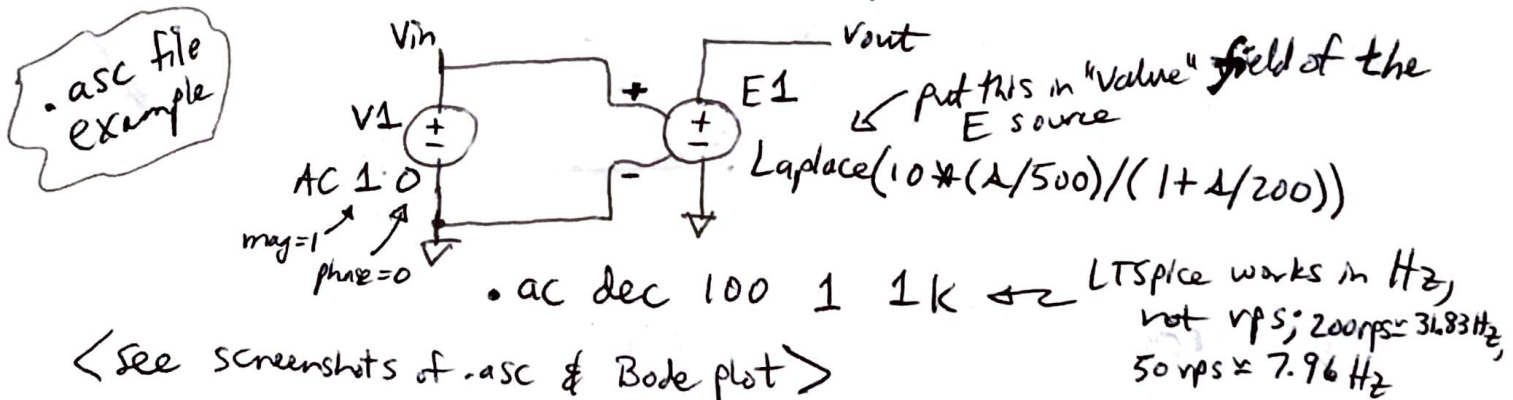 .asc file
example
Vin
Vout
+
E1
put this in "value" field of the
E source
V1
+
-
+
-
-
Laplace(10*(s/500)/(1+s/200))
AC 1 0
mag=1
phase=0
.ac dec 100 1 1k
LTSpice works in Hz,
not rps; 200rps≈31.83Hz,
50 rps ≈ 7.96 Hz
<see screenshots of .asc & Bode plot>